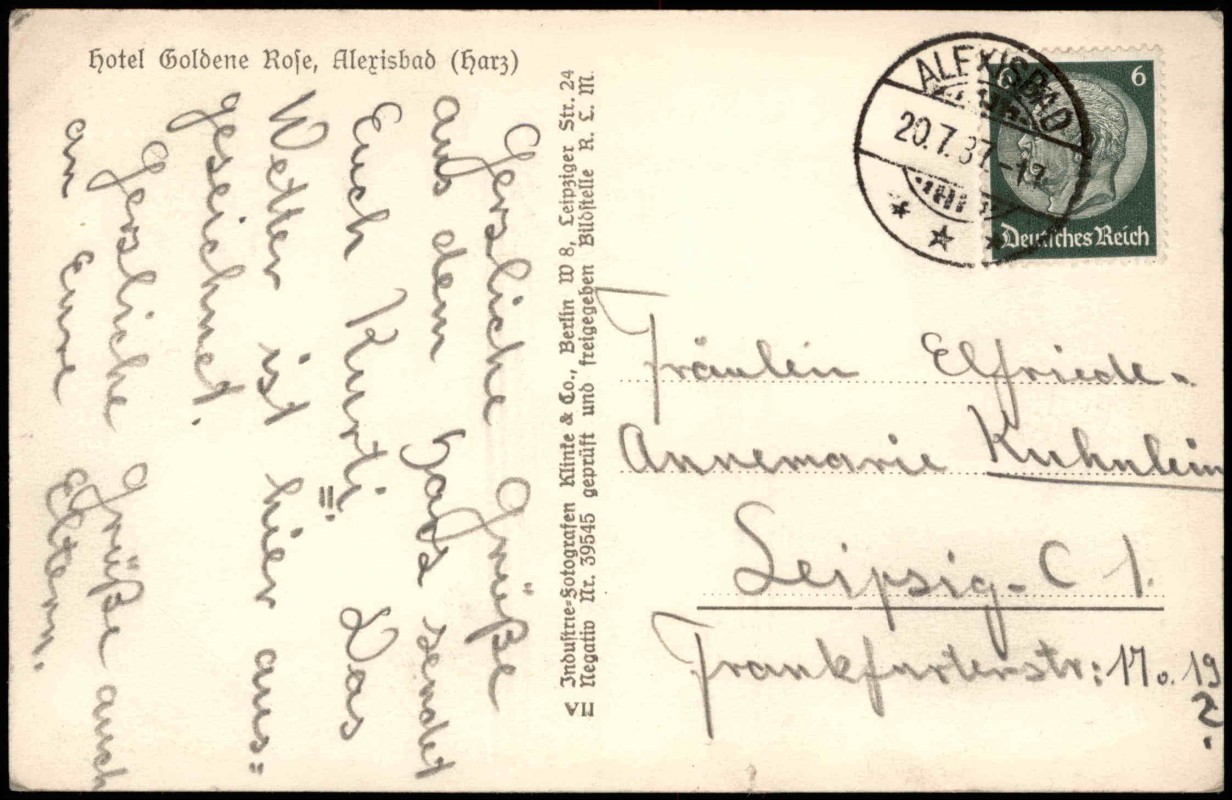 Hotel Goldene Rose, Alexisbad (Harz)
Gersliche Grüße
aus dem Hads sendet
Euch Kurti. Das
Wetter ist hier aus=
geseichnet.
Gersliche Grüße auch
an Eure Eltern.
VII
Industrie=Fotografen Klinke & Co., Berlin W 8, Leipziger Str. 24
Negativ Nr. 39545 geprüft und freigegeben Bildstelle R. L. M.
ALEXISBAD
20.7.37.-17
6
6
Deutsches Reich
Fräulein Elfriede-
Annemarie Kuhnlein
Leipsig-C 1.
Frankfurterstr: 17 o. 19
?